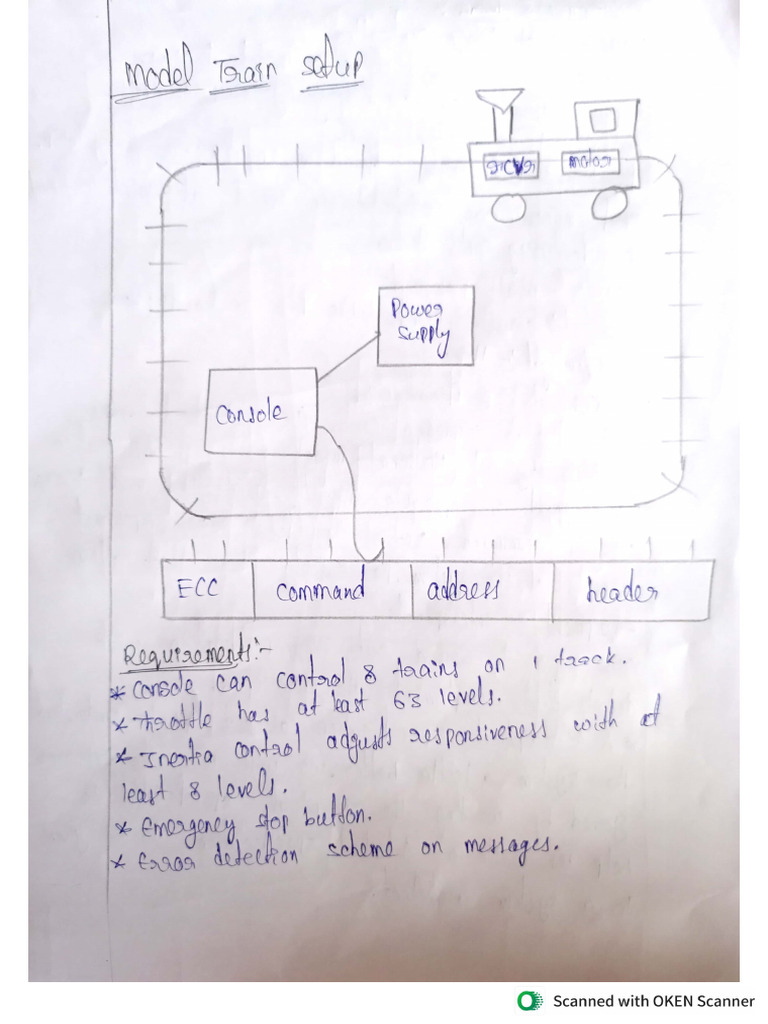 Model Train setup
rcvr motor
Power
Supply
Console
ECC command address header
Requirements:-
* Console can control 8 trains on 1 track.
* Throttle has at least 63 levels.
* Inertia control adjusts responsiveness with at
least 8 levels.
* Emergency stop button.
* Error detection scheme on messages.
Scanned with OKEN Scanner